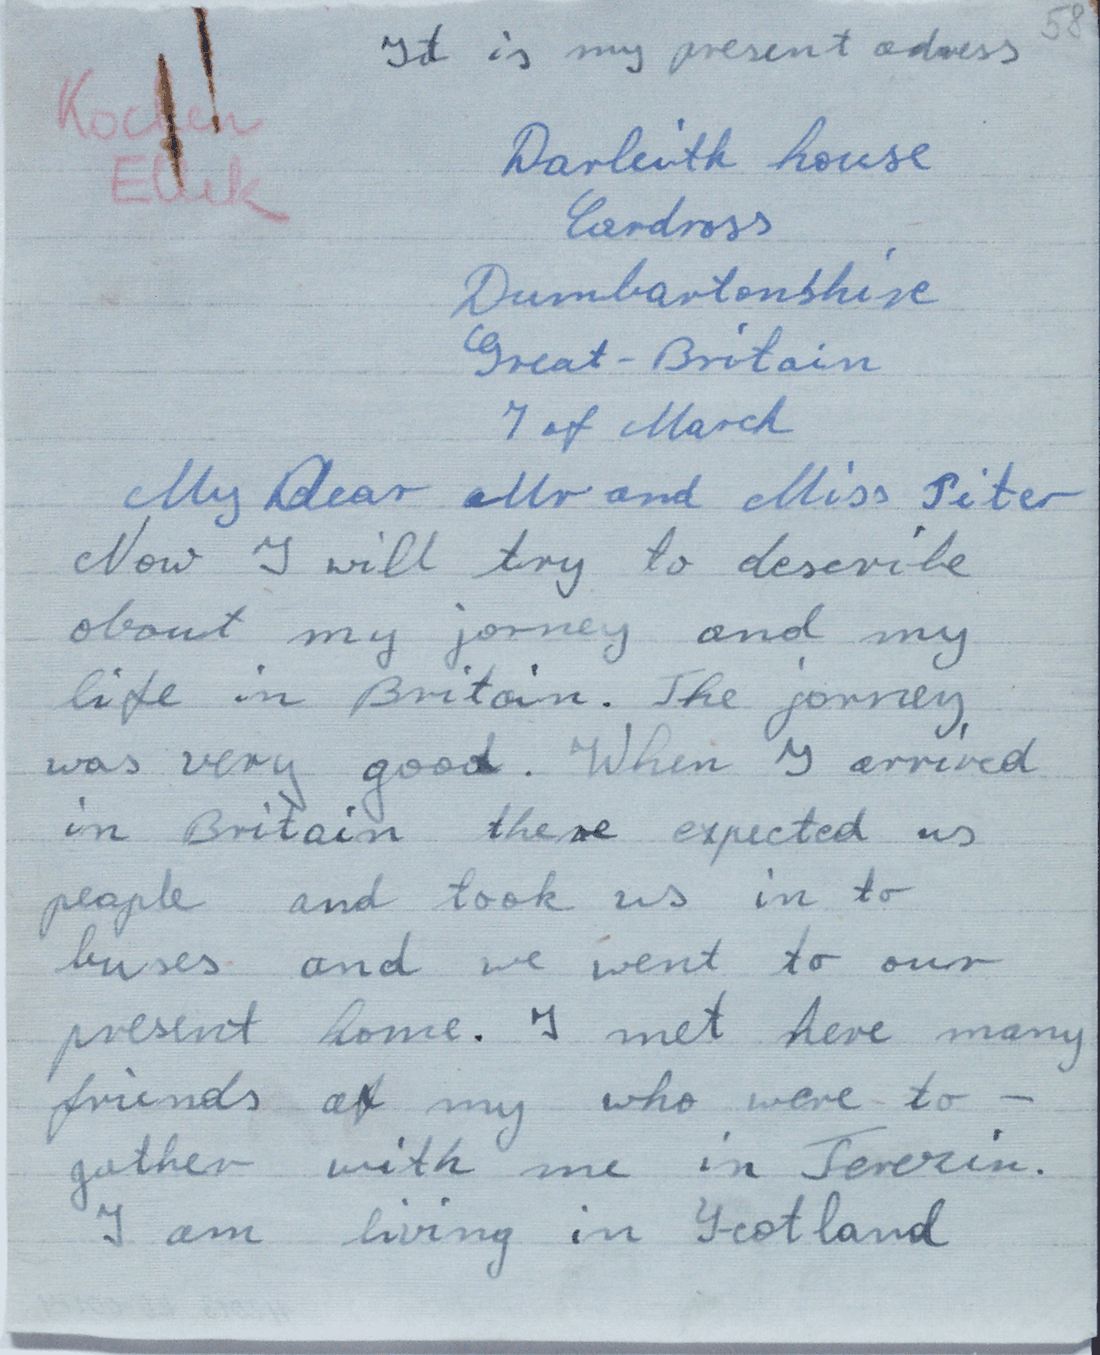 58
It is my present adress
Kochen
Ellek
Darleith house
Cardross
Dumbartonshire
Great-Britain
7 of March
My Dear Mr and Miss Piter
Now I will try to describe
about my jorney and my
life in Britain. The jorney
was very good. When I arrived
in Britain there expected us
peaple and took us in to
buses and we went to our
present home. I met here many
friends of my who were to-
gather with me in Terezin.
I am living in Scotland